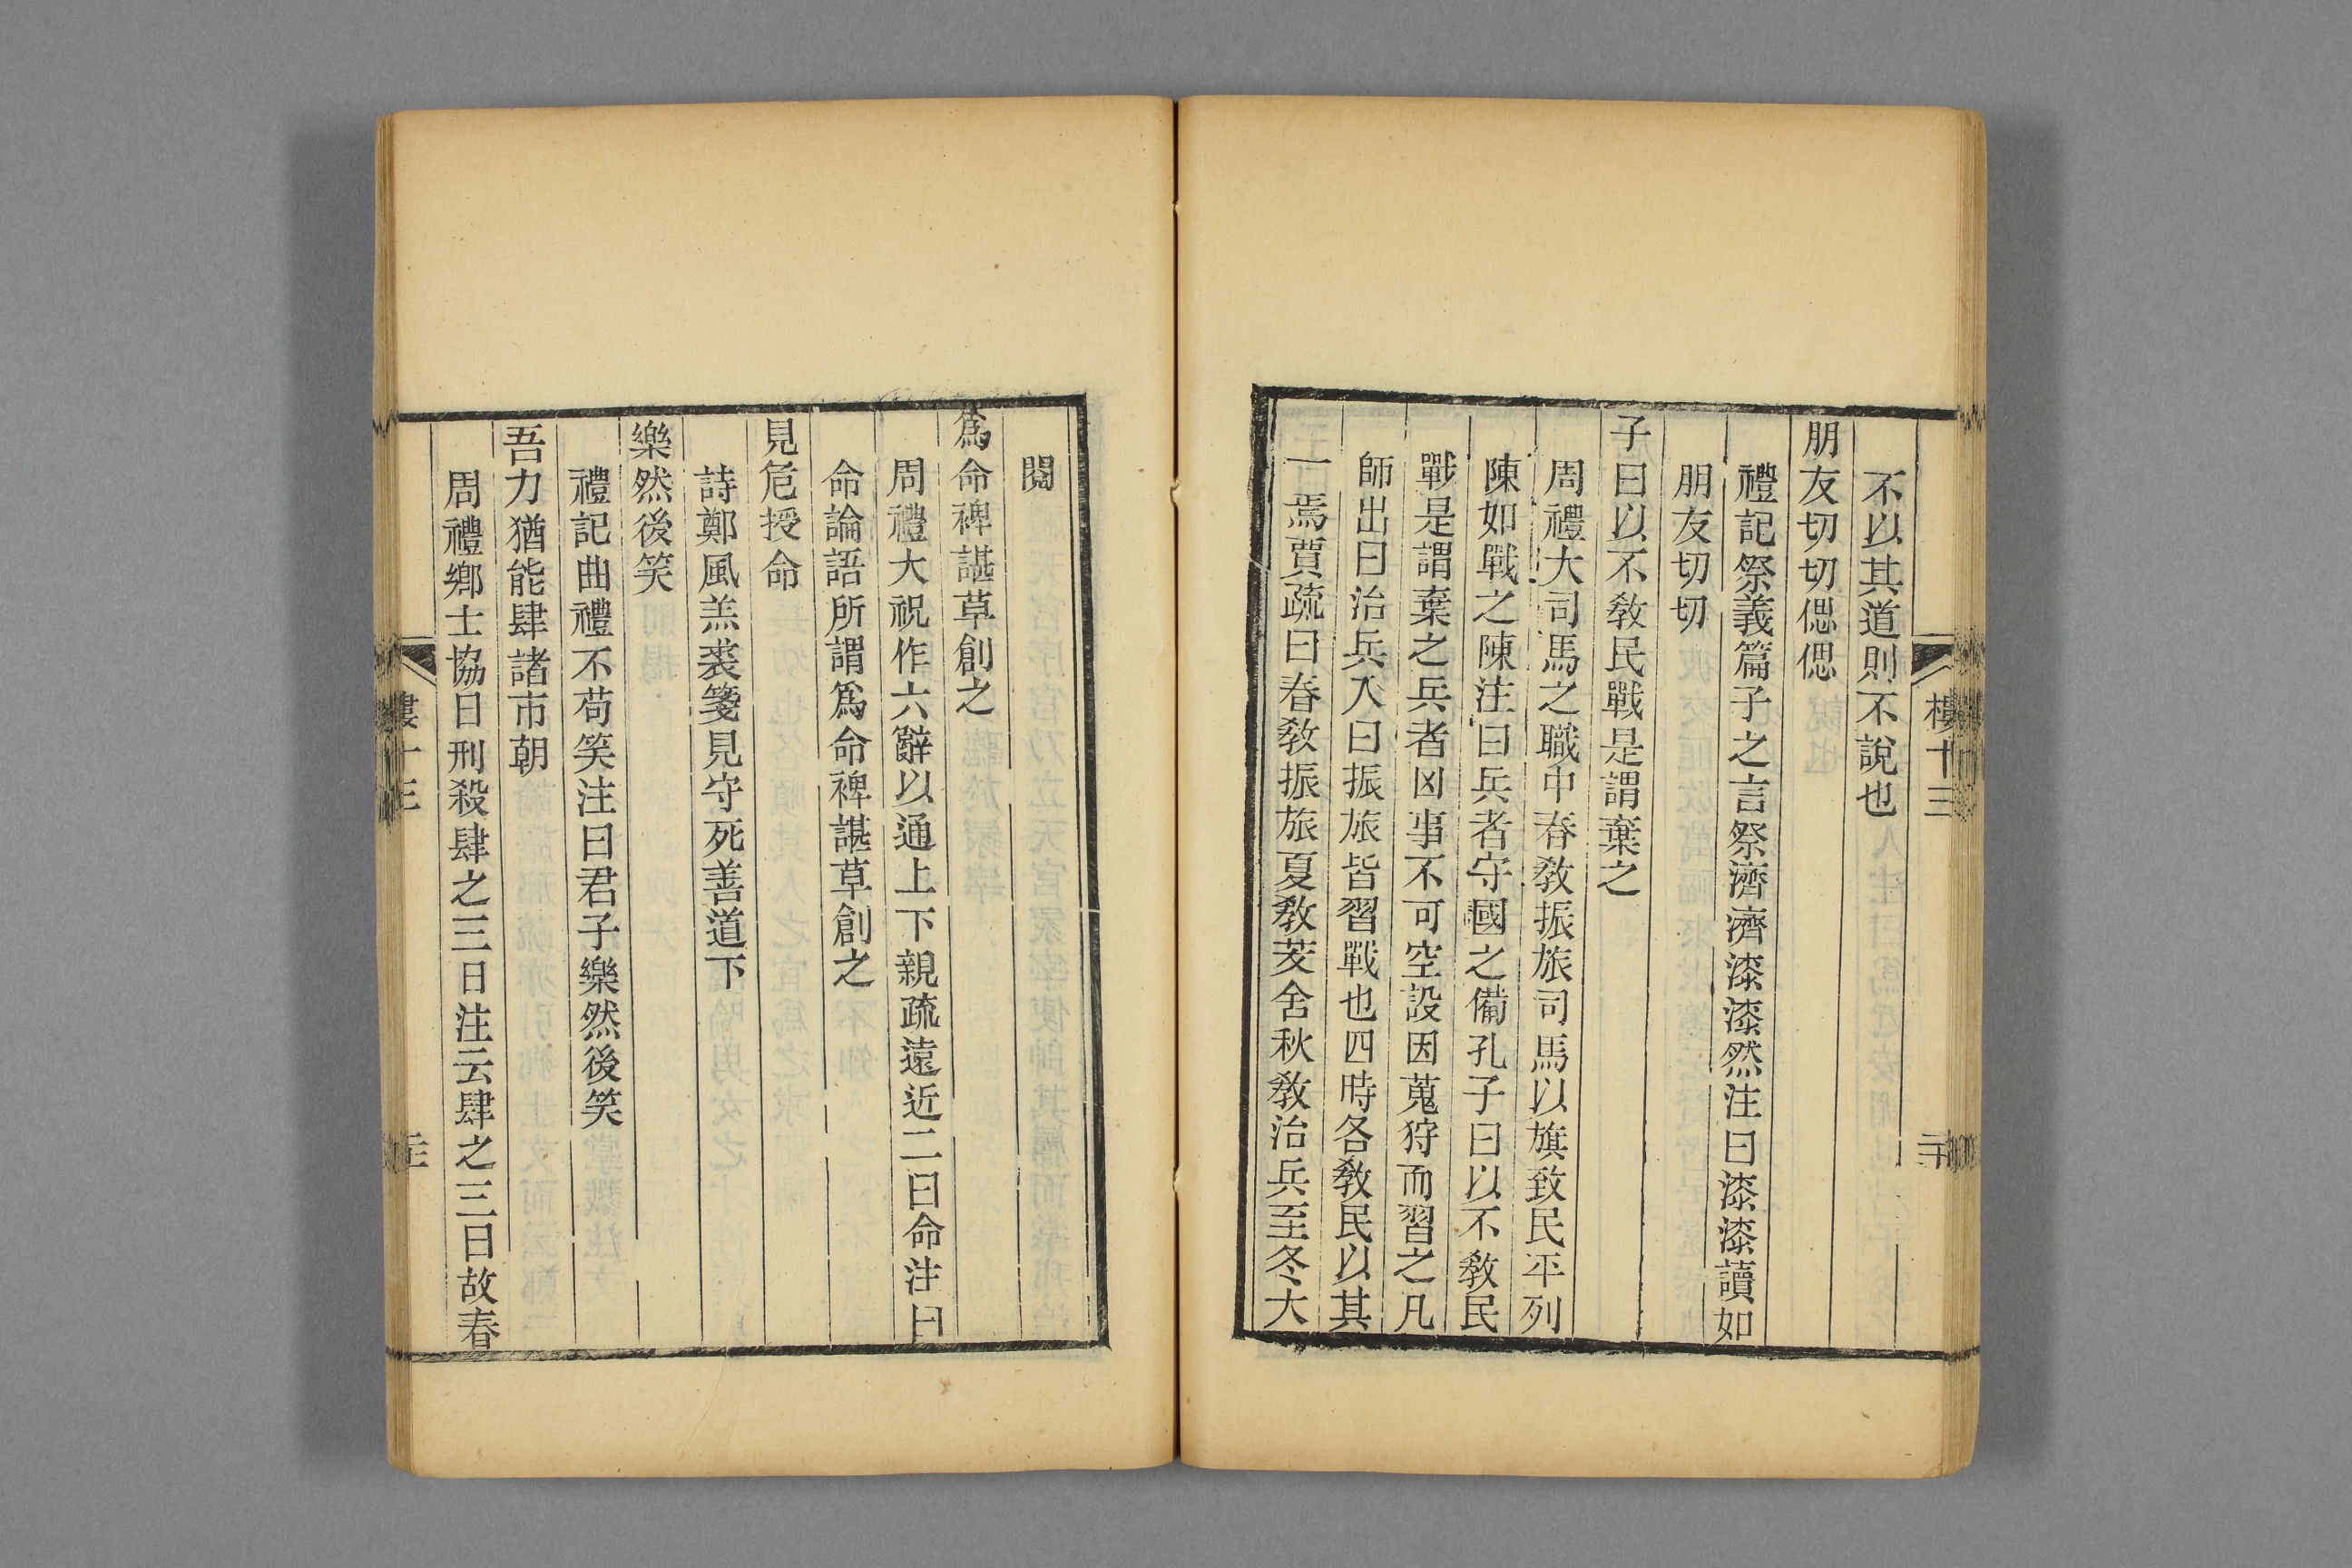 樓十三
二十
不以其道則不說也
朋友切切偲偲
禮記祭義篇子之言祭濟濟漆漆然注曰漆漆讀如
朋友切切
子曰以不敎民戰是謂棄之
周禮大司馬之職中春敎振旅司馬以旗致民平列
陳如戰之陳注曰兵者守國之備孔子曰以不敎民
戰是謂棄之兵者凶事不可空設因蒐狩而習之凡
師出曰治兵入曰振旅皆習戰也四時各敎民以其
一焉賈疏曰春敎振旅夏敎茇舍秋敎治兵至冬大
閱
爲命裨諶草創之
周禮大祝作六辭以通上下親疏遠近二曰命注曰
命論語所謂爲命裨諶草創之
見危授命
詩鄭風羔裘箋見守死善道下
樂然後笑
禮記曲禮不苟笑注曰君子樂然後笑
吾力猶能肆諸市朝
周禮鄕士協日刑殺肆之三日注云肆之三日故春
樓十三